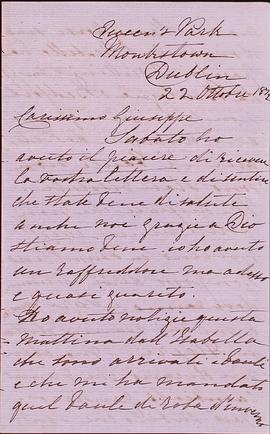 Queen's Park
Monkstown
Dublin
22 Ottobre 18
Carissimo Giuseppe
Sabato ho
avuto il piacere di ricevere
la vostra lettera e di sentire
che state bene di salute
anche noi grazie a Dio
stiamo bene. io ho avuto
un raffreddore ma adesso
e quasi guarito.
Ho avuto notizie questa
mattina dall'Isabella
che sono arrivate i baule
e che mi ha mandato
quel baule di roba d'inverno